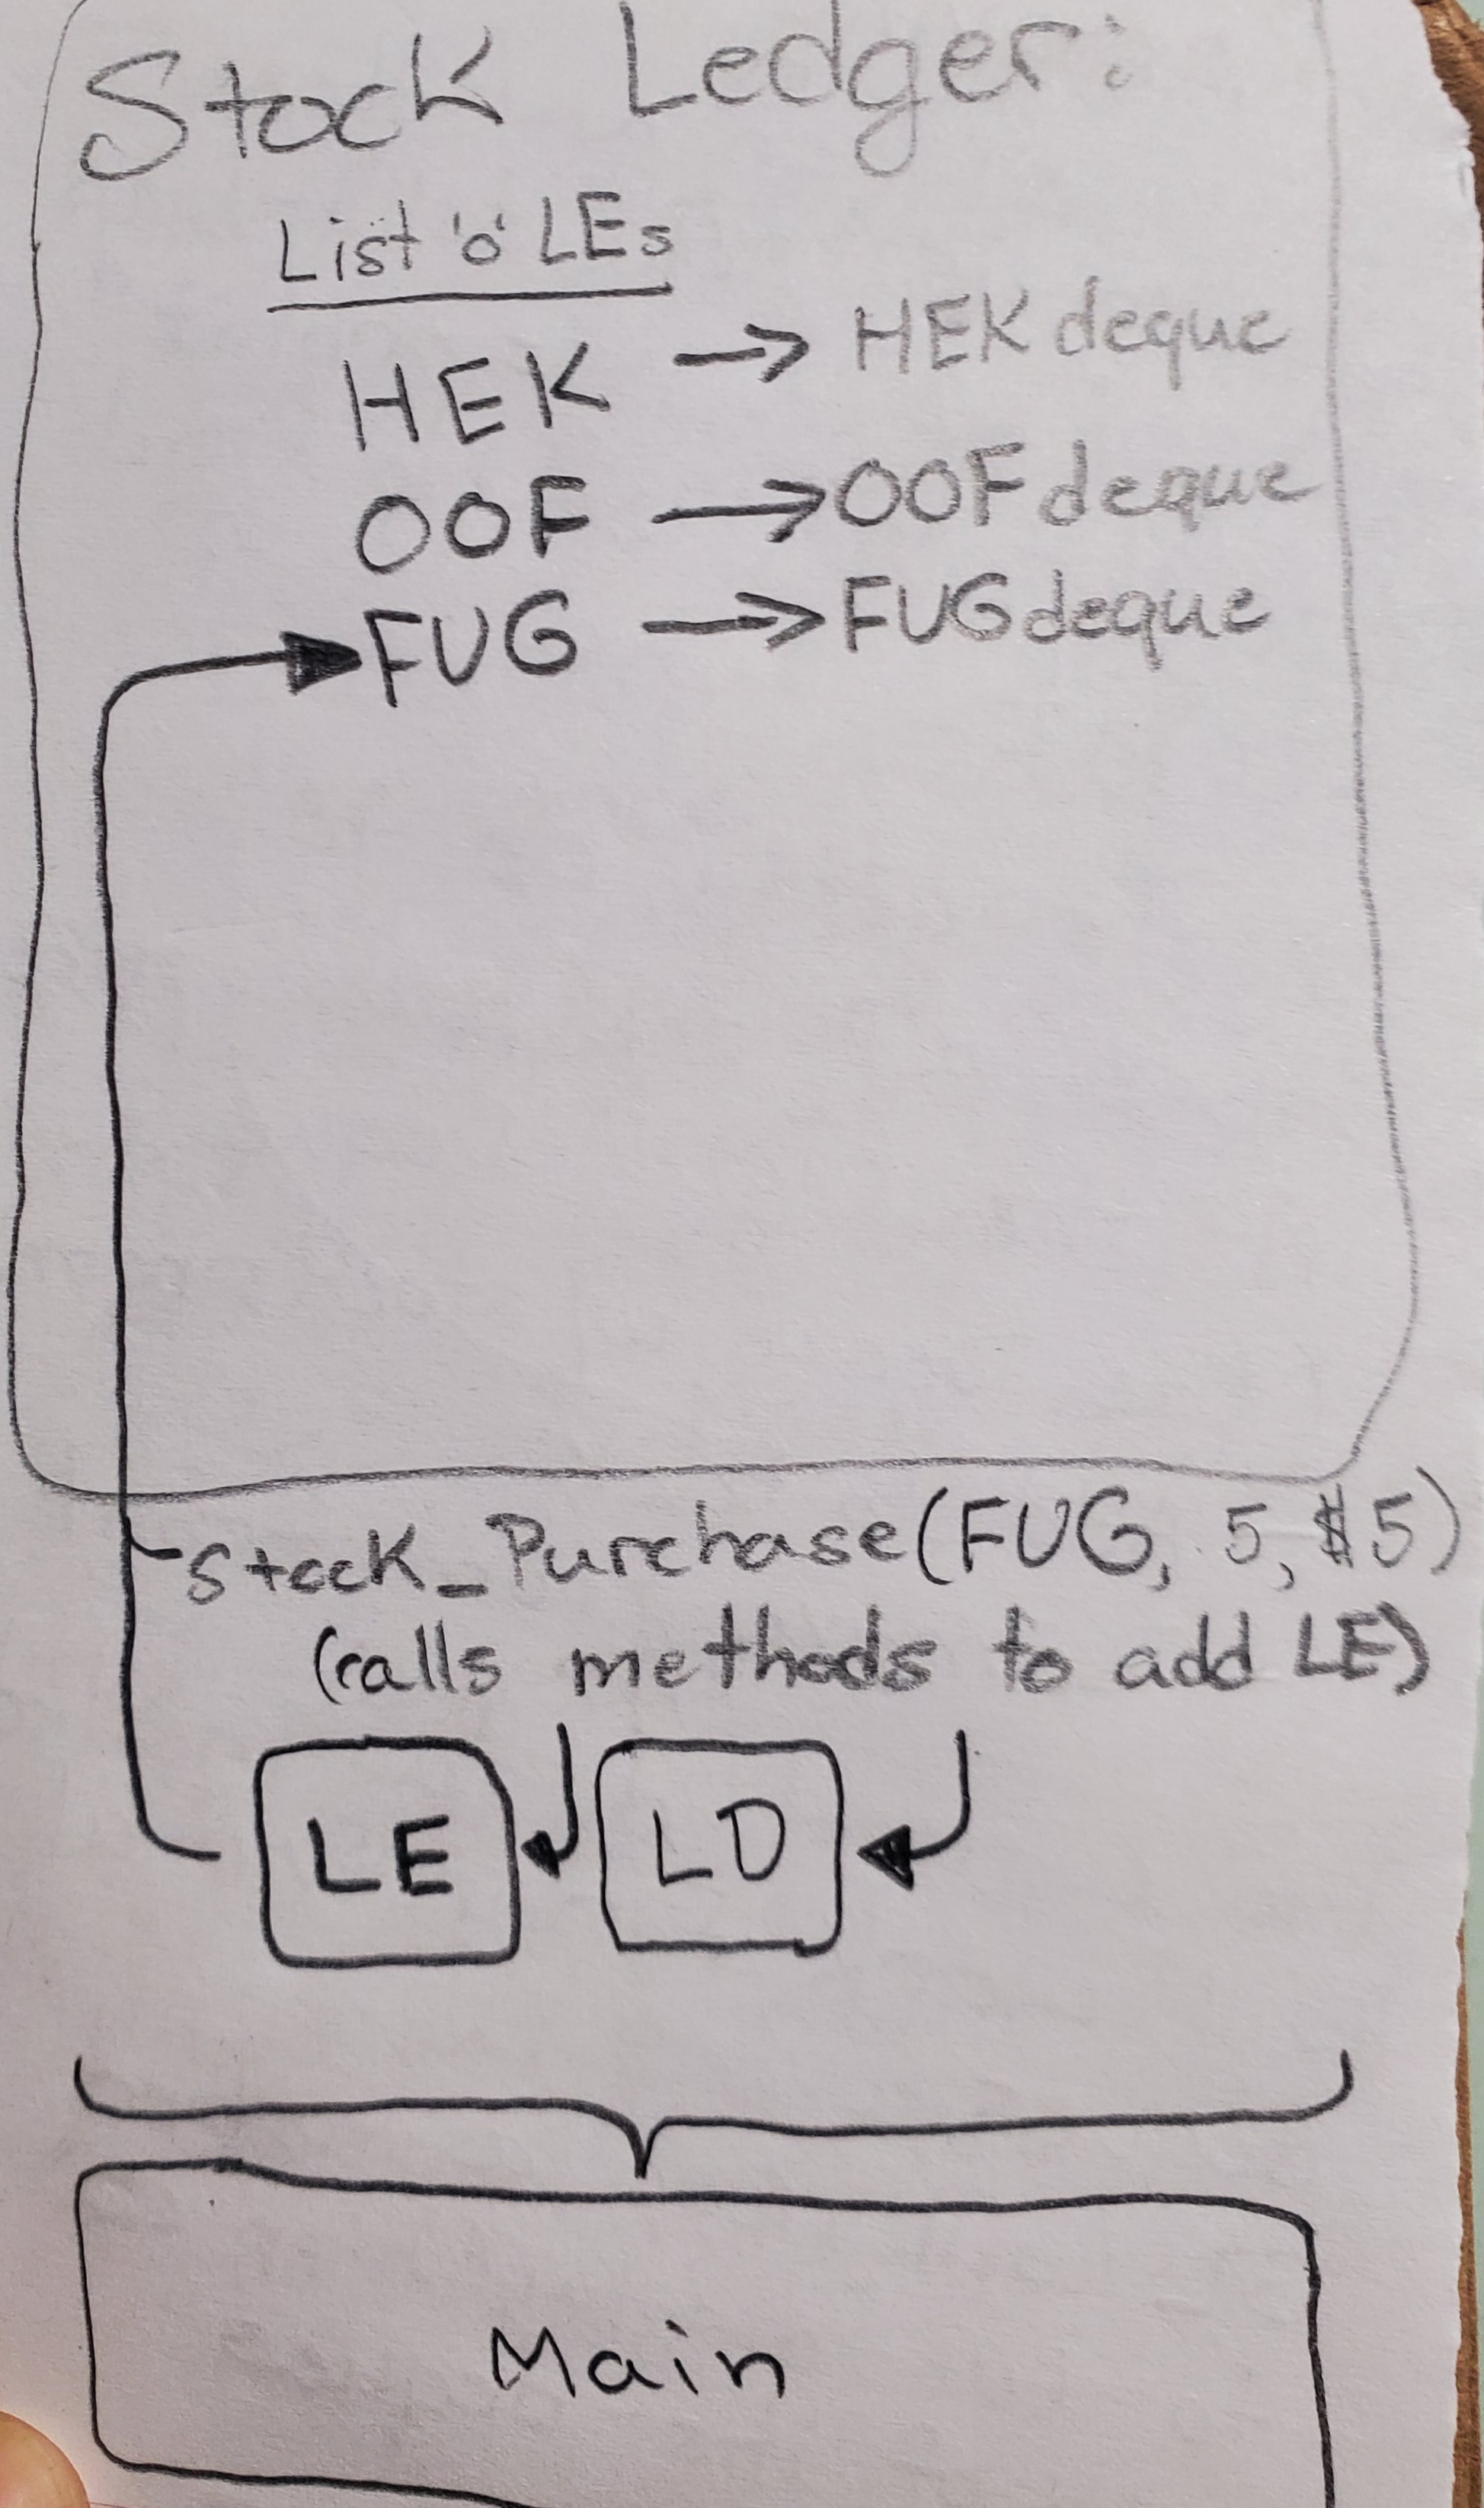 Stock Ledger:
List 'o' LEs
HEK → HEK deque
OOF → OOF deque
FUG → FUG deque
Stock_Purchase(FUG, 5, $5)
(calls methods to add LE)
LE LD
Main